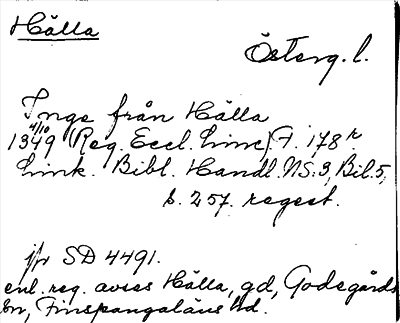 Hälla
Österg. l.
Inge från Hälla
4/10
1349 (Reg. Eccl. Linc) f. 178 r.
Link. Bibl. Handl. NS. 3, Bil. 5,
s. 257. regest.
jfr SD 4491.
enl. reg. avses Hälla, gd, Godegårds
sn, Finspångaläns hd.